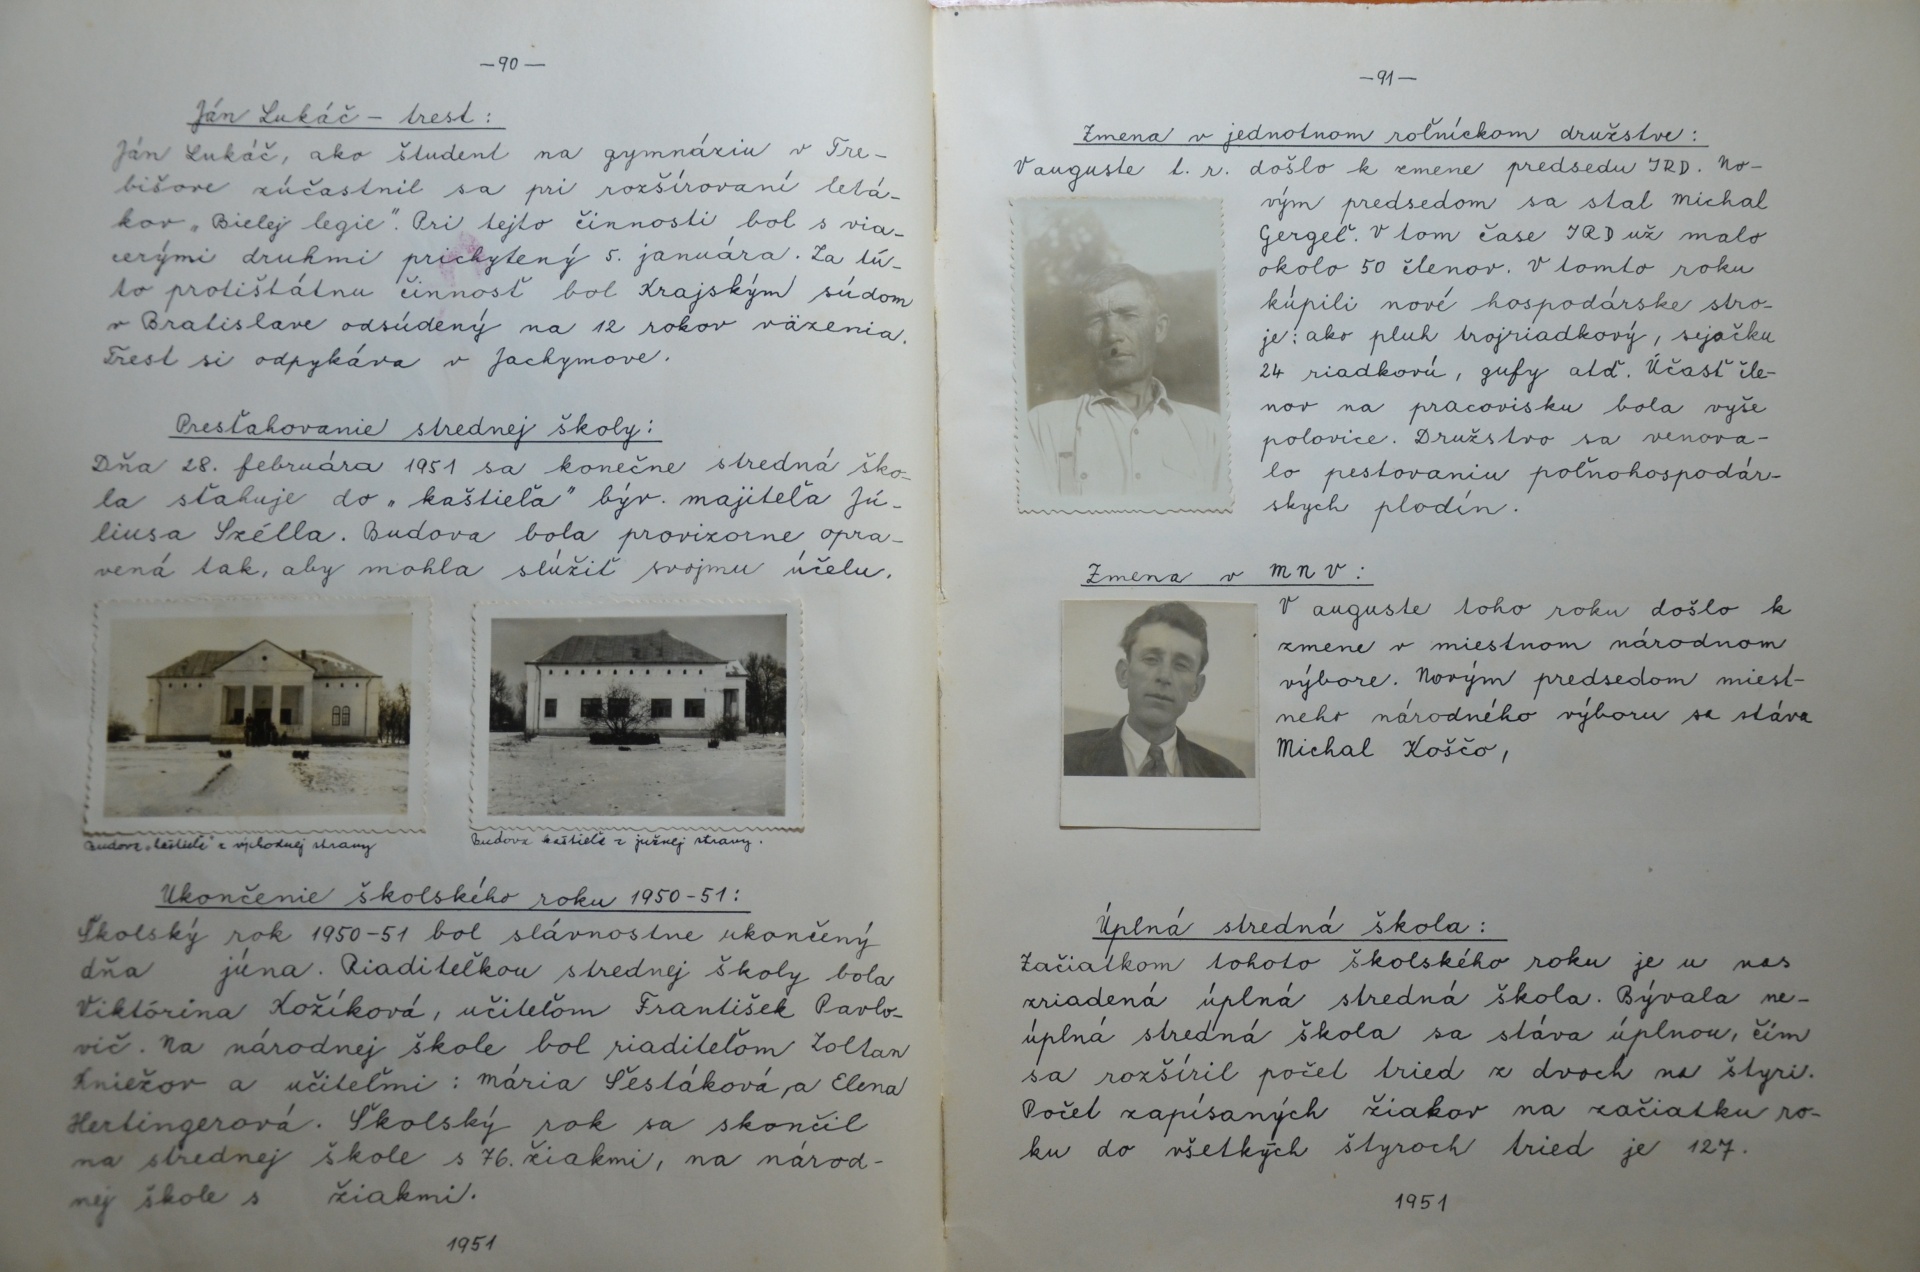 —90—
Ján Lukáč — trest:
Ján Lukáč, ako študent na gymnáziu v Tre-
bišove zúčastnil sa pri rozširovaní letá-
kov „Bielej legie". Pri tejto činnosti bol s via-
cerými druhmi prichytený 5. januára. Za tú-
to protištátnu činnosť bol Krajským súdom
v Bratislave odsúdený na 12 rokov väzenia.
Trest si odpykáva v Jachymove.
Presťahovanie strednej školy:
Dňa 28. februára 1951 sa konečne stredná ško-
la sťahuje do „kaštieľa" býv. majiteľa Jú-
liusa Szélla. Budova bola provizorne opra-
vená tak, aby mohla slúžiť svojmu účelu.
Budova „kaštieľa" z východnej strany
Budova kaštieľa z južnej strany.
Ukončenie školského roku 1950-51:
Školský rok 1950-51 bol slávnostne ukončený
dňa júna. Riaditeľkou strednej školy bola
Viktórina Kožíková, učiteľom František Pavlo-
vič. Na národnej škole bol riaditeľom Zoltan
Kniežov a učiteľmi: Mária Šestáková, a Elena
Hertingerová. Školský rok sa skončil
na strednej škole s 76. žiakmi, na národ-
nej škole s žiakmi.
1951
—91—
Zmena v jednotnom roľníckom družstve:
V auguste t. r. došlo k zmene predsedu JRD. No-
vým predsedom sa stal Michal
Gergeľ. V tom čase JRD už malo
okolo 50 členov. V tomto roku
kúpili nové hospodárske stro-
je: ako pluh trojriadkový, sejačku
24 riadkovú, gufy atď. Účasť čle-
nov na pracovisku bola vyše
polovice. Družstvo sa venova-
lo pestovaniu poľnohospodár-
skych plodín.
Zmena v MNV:
V auguste toho roku došlo k
zmene v miestnom národnom
výbore. Novým predsedom miest-
neho národného výboru sa stáva
Michal Koščo,
Úplná stredná škola:
Začiatkom tohoto školského roku je u nas
zriadená úplná stredná škola. Bývala ne-
úplná stredná škola sa stáva úplnou, čím
sa rozšíril počet tried z dvoch na štyri.
Počet zapísaných žiakov na začiatku ro-
ku do všetkých štyroch tried je 127.
1951